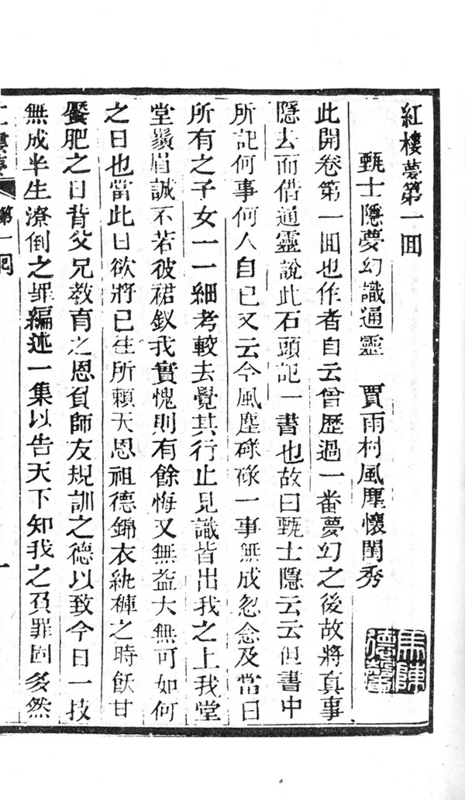 紅樓夢第一囘
甄士隱夢幻識通靈　賈雨村風塵懷閨秀
此開卷第一囘也作者自云曾歷過一番夢幻之後故將真事
隱去而借通靈說此石頭記一書也故曰甄士隱云云但書中
所記何事何人自己又云今風塵碌碌一事無成忽念及當日
所有之子女一一細考較去覺其行止見識皆出我之上我堂
堂鬚眉誠不若彼裙釵我實愧則有餘悔又無益大無可如何
之日也當此日欲將已往所賴天恩祖德錦衣紈褲之時飫甘
饜肥之日背父兄教育之恩負師友規訓之德以致今日一技
無成半生潦倒之罪編述一集以告天下知我之負罪固多然
紅樓夢
第一囘
一